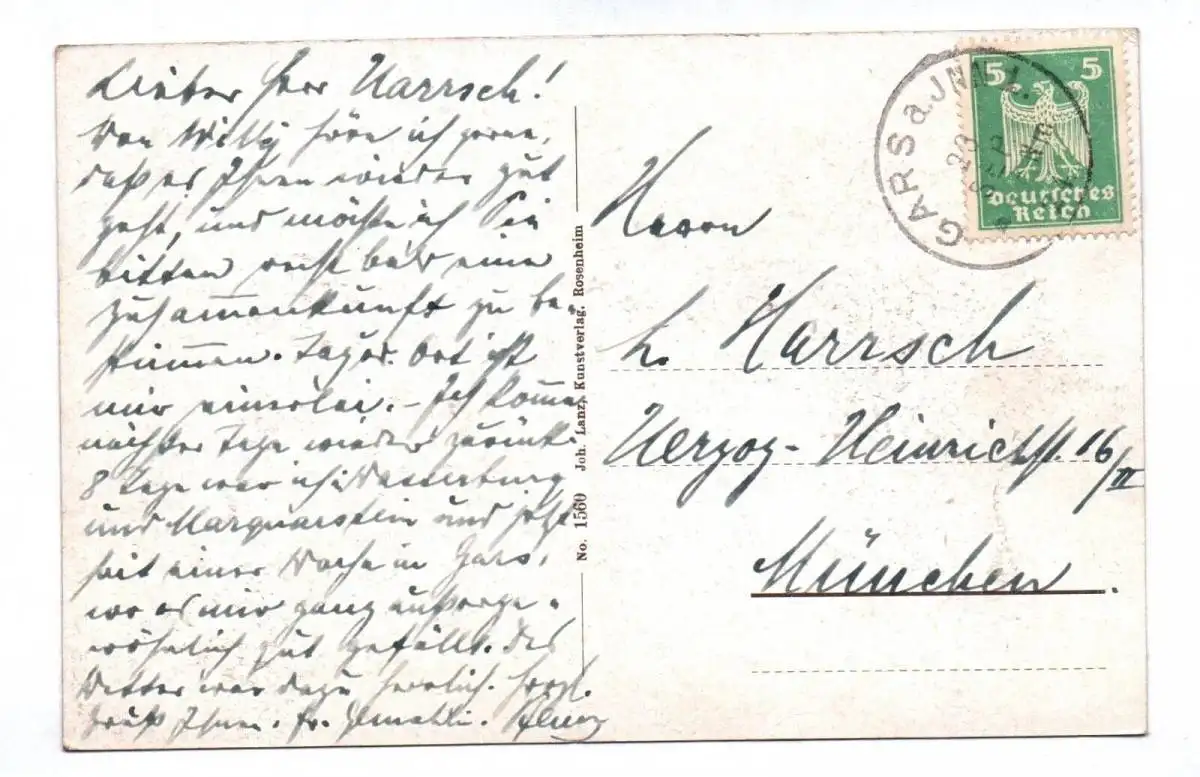 Lieber Herr Harrsch!
Von Willy höre ich gerne,
daß es Ihnen wieder gut
geht, und möchte ich Sie
bitten recht bald eine
Zusammenkunft zu be-
stimmen. Tag od. Ort ist
mir einerlei. – Ich komme
nächster Tage wieder zurück.
8 Tage war ich i. Wasserburg
und Marquarstein und jetzt
seit einer Woche in Gars,
wo es mir ganz außerge-
wöhnlich gut gefällt. Das
Wetter war dazu herrlich. Herzl.
Gruß Ihnen. Fr. Gemahlin.
No. 1560 Joh. Lanz, Kunstverlag, Rosenheim
GARS a. JNN
5 5
Deutsches
Reich
Herrn
H. Harrsch
Herzog-Heinrichst. 16/II
München.